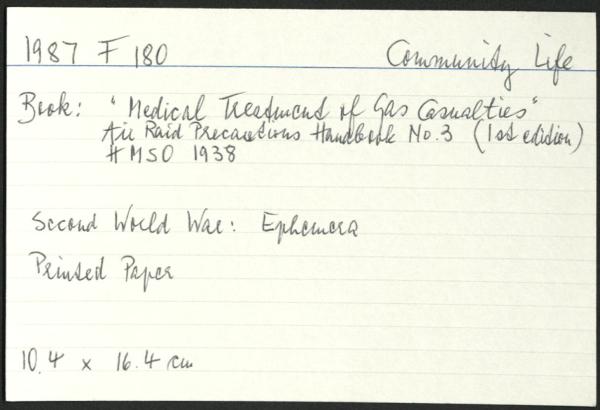 1987 F 180 Community Life
Book: "Medical Treatment of Gas Casualties"
Air Raid Precautions Handbook No.3 (1st edition)
HMSO 1938
Second World War: Ephemera
Printed Paper
10.4 x 16.4 cm